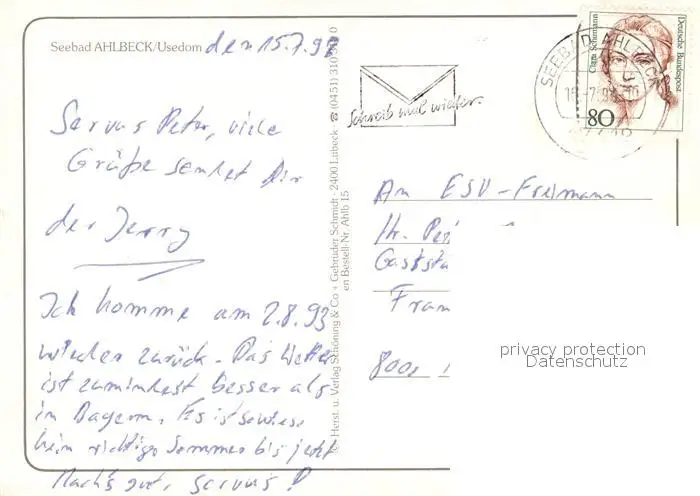 Seebad AHLBECK/Usedom den 15.7.93
Servus Peter, viele
Grüße sendet Dir
der Jerry
Ich komme am 2.8.93
wieder zurück. Das Wetter
ist zumindest besser als
in Bayern. Es ist sowieso
kein richtiger Sommer bis jetzt
Mach's gut, servus!
© Herst. u. Verlag Schöning & Co + Gebrüder Schmidt · 2400 Lübeck · ☎ (0451) 310
en Bestell-Nr. Ahlb 15
Schreib mal wieder.
SEEBAD AHLBECK
Clara Schumann
Deutsche Bundespost
80
An ESV-Freimann
Hr. Pe
Gaststä
Fran
privacy protection
Datenschutz